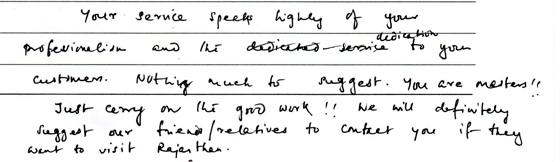 Your service speaks highly of your
professionalism and the dedicated service dedication to your
customers. Nothing much to suggest. You are masters!!
Just carry on the good work!! We will definitely
suggest our friends/relatives to contact you if they
want to visit Rajasthan.